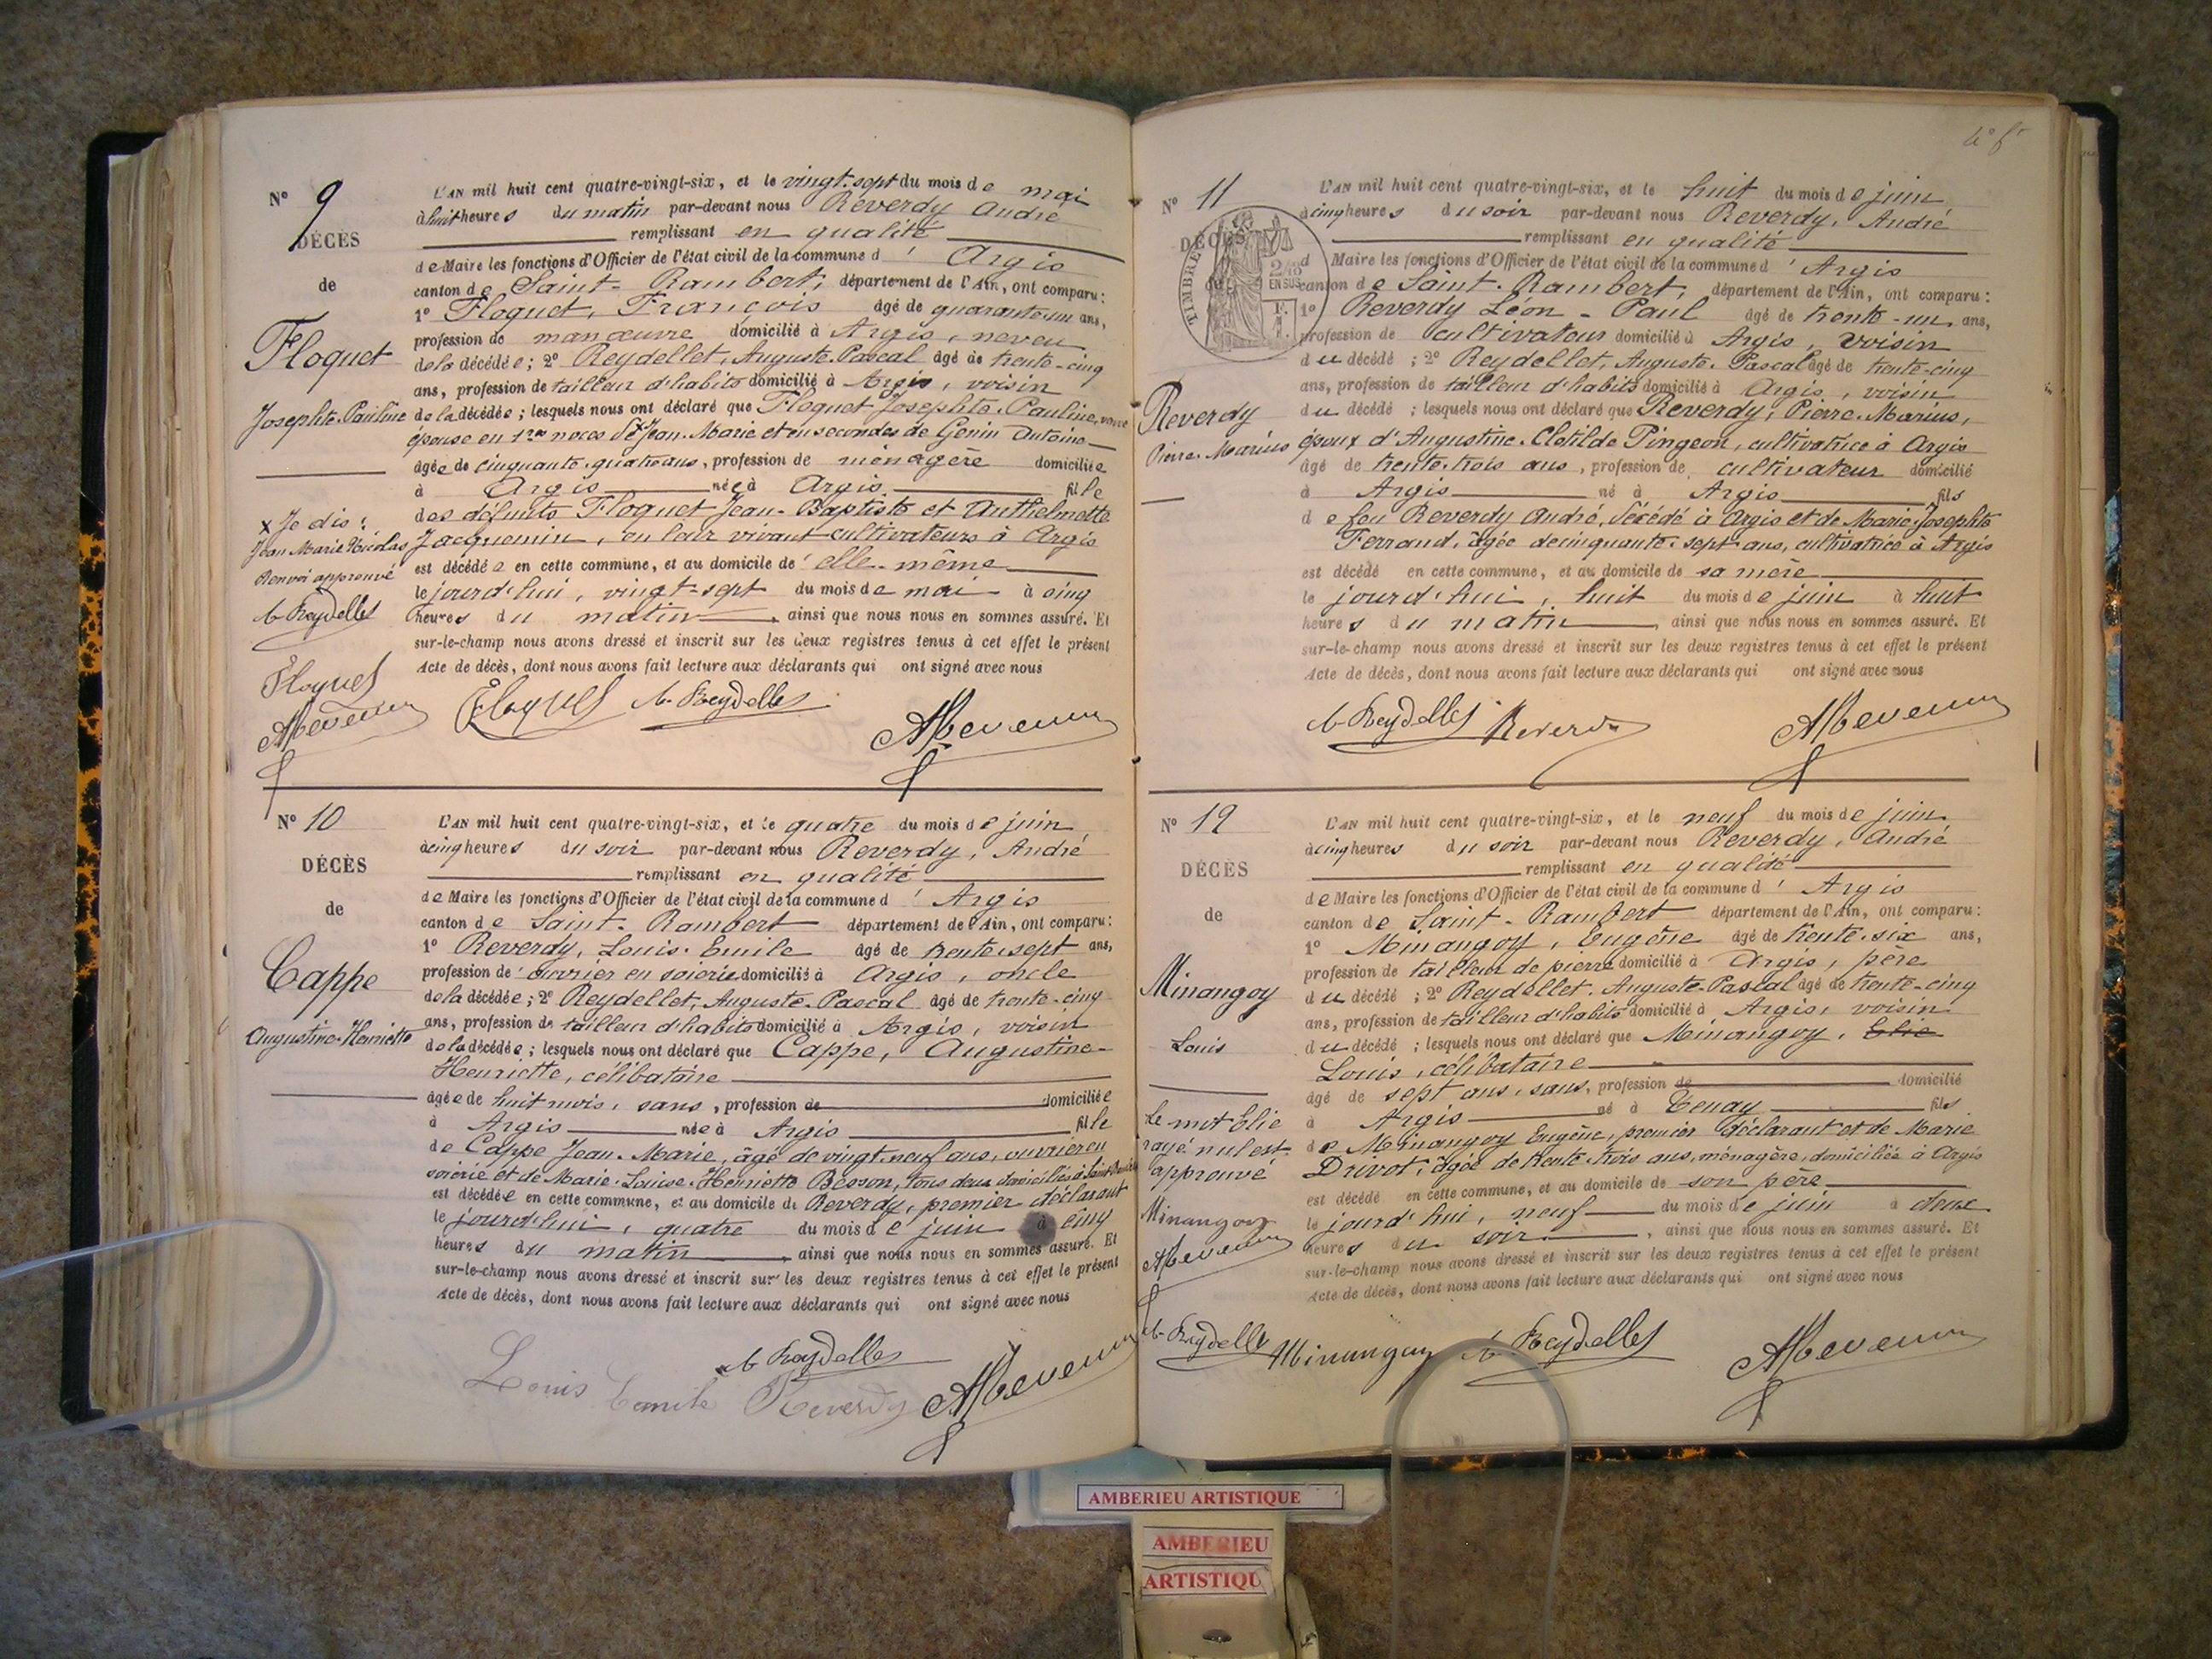 N° 9
DÉCÈS
de
Floquet
Josephte-Pauline
x Je dis :
Jean Marie Nicolas
Renvoi approuvé
A. Reydellet
Floquet
L'AN mil huit cent quatre-vingt-six, et le vingt-sept du mois de mai
à huit heures du matin par-devant nous Reverdy André
remplissant en qualité
de Maire les fonctions d'Officier de l'état civil de la commune d'Argis
canton de Saint-Rambert, département de l'Ain, ont comparu :
1° Floquet, François âgé de quarante un ans,
profession de manœuvre domicilié à Argis, neveu
de la décédée ; 2° Reydellet, Auguste-Pascal âgé de trente-cinq
ans, profession de tailleur d'habits domicilié à Argis, voisin
de la décédée ; lesquels nous ont déclaré que Floquet Josephte-Pauline, veuve
épouse en 1res noces de x Jean-Marie et en secondes de Genin Antoine
âgée de cinquante-quatre ans, profession de ménagère domiciliée
à Argis née à Argis fille
des défunts Floquet Jean-Baptiste et Anthelmette
Jacquemin, en leur vivant cultivateurs à Argis
est décédée en cette commune, et au domicile de elle-même
le jourd'hui, vingt-sept du mois de mai à cinq
heures du matin, ainsi que nous nous en sommes assuré. Et
sur-le-champ nous avons dressé et inscrit sur les deux registres tenus à cet effet le présent
Acte de décès, dont nous avons fait lecture aux déclarants qui ont signé avec nous
Floquet A. Reydellet
N° 10
DÉCÈS
de
Cappe
Augustine-Henriette
L'AN mil huit cent quatre-vingt-six, et le quatre du mois de juin
à cinq heures du soir par-devant nous Reverdy, André
remplissant en qualité
de Maire les fonctions d'Officier de l'état civil de la commune d'Argis
canton de Saint-Rambert département de l'Ain, ont comparu :
1° Reverdy, Louis-Emile âgé de trente-sept ans,
profession de ouvrier en soierie domicilié à Argis, oncle
de la décédée ; 2° Reydellet, Auguste-Pascal âgé de trente-cinq
ans, profession de tailleur d'habits domicilié à Argis, voisin
de la décédée ; lesquels nous ont déclaré que Cappe, Augustine-
Henriette, célibataire
âgée de huit mois, sans, profession de domiciliée
à Argis née à Argis fille
de Cappe Jean-Marie, âgé de vingt-neuf ans, ouvrier en
soierie et de Marie-Louise-Henriette Besson, tous deux domiciliés à Saint-Rambert
est décédée en cette commune, et au domicile de Reverdy, premier déclarant
le jourd'hui, quatre du mois de juin à cinq
heures du matin, ainsi que nous nous en sommes assuré. Et
sur-le-champ nous avons dressé et inscrit sur les deux registres tenus à cet effet le présent
Acte de décès, dont nous avons fait lecture aux déclarants qui ont signé avec nous
A. Reydellet
Louis Emile Reverdy
N° 11
DÉCÈS
de
TIMBRE
2/10 EN SUS
Reverdy
Pierre-Marius
L'AN mil huit cent quatre-vingt-six, et le huit du mois de juin
à cinq heures du soir par-devant nous Reverdy, André
remplissant en qualité
d Maire les fonctions d'Officier de l'état civil de la commune d'Argis
canton de Saint-Rambert, département de l'Ain, ont comparu :
1° Reverdy Léon-Paul âgé de trente-un, ans,
profession de cultivateur domicilié à Argis, voisin
du décédé ; 2° Reydellet, Auguste-Pascal âgé de trente-cinq
ans, profession de tailleur d'habits domicilié à Argis, voisin
du décédé ; lesquels nous ont déclaré que Reverdy, Pierre-Marius,
époux d'Augustine-Clotilde Pingeon, cultivatrice à Argis
âgé de trente-trois ans, profession de cultivateur domicilié
à Argis né à Argis fils
de feu Reverdy André, décédé à Argis et de Marie-Josephte
Ferrand, âgée de cinquante-sept ans, cultivatrice à Argis
est décédé en cette commune, et au domicile de sa mère
le jourd'hui, huit du mois de juin à huit
heures du matin, ainsi que nous nous en sommes assuré. Et
sur-le-champ nous avons dressé et inscrit sur les deux registres tenus à cet effet le présent
Acte de décès, dont nous avons fait lecture aux déclarants qui ont signé avec nous
A. Reydellet Reverdy
N° 12
DÉCÈS
de
Minangoy
Louis
Le mot Elie
rayé nul est
approuvé
Minangoy
A. Reydellet
L'AN mil huit cent quatre-vingt-six, et le neuf du mois de juin
à cinq heures du soir par-devant nous Reverdy, André
remplissant en qualité
de Maire les fonctions d'Officier de l'état civil de la commune d'Argis
canton de Saint-Rambert département de l'Ain, ont comparu :
1° Minangoy, Eugène âgé de trente-six ans,
profession de tailleur de pierre domicilié à Argis, père
du décédé ; 2° Reydellet, Auguste-Pascal âgé de trente-cinq
ans, profession de tailleur d'habits domicilié à Argis, voisin
du décédé ; lesquels nous ont déclaré que Minangoy, Elie
Louis, célibataire
âgé de sept ans, sans, profession de domicilié
à Argis né à Tenay fils
de Minangoy Eugène, premier déclarant et de Marie
Drivot, âgée de trente-trois ans, ménagère, domiciliée à Argis
est décédé en cette commune, et au domicile de son père
le jourd'hui, neuf du mois de juin à deux
heures du soir, ainsi que nous nous en sommes assuré. Et
sur-le-champ nous avons dressé et inscrit sur les deux registres tenus à cet effet le présent
Acte de décès, dont nous avons fait lecture aux déclarants qui ont signé avec nous
Minangoy A. Reydellet
AMBERIEU ARTISTIQUE
AMBERIEU
ARTISTIQU